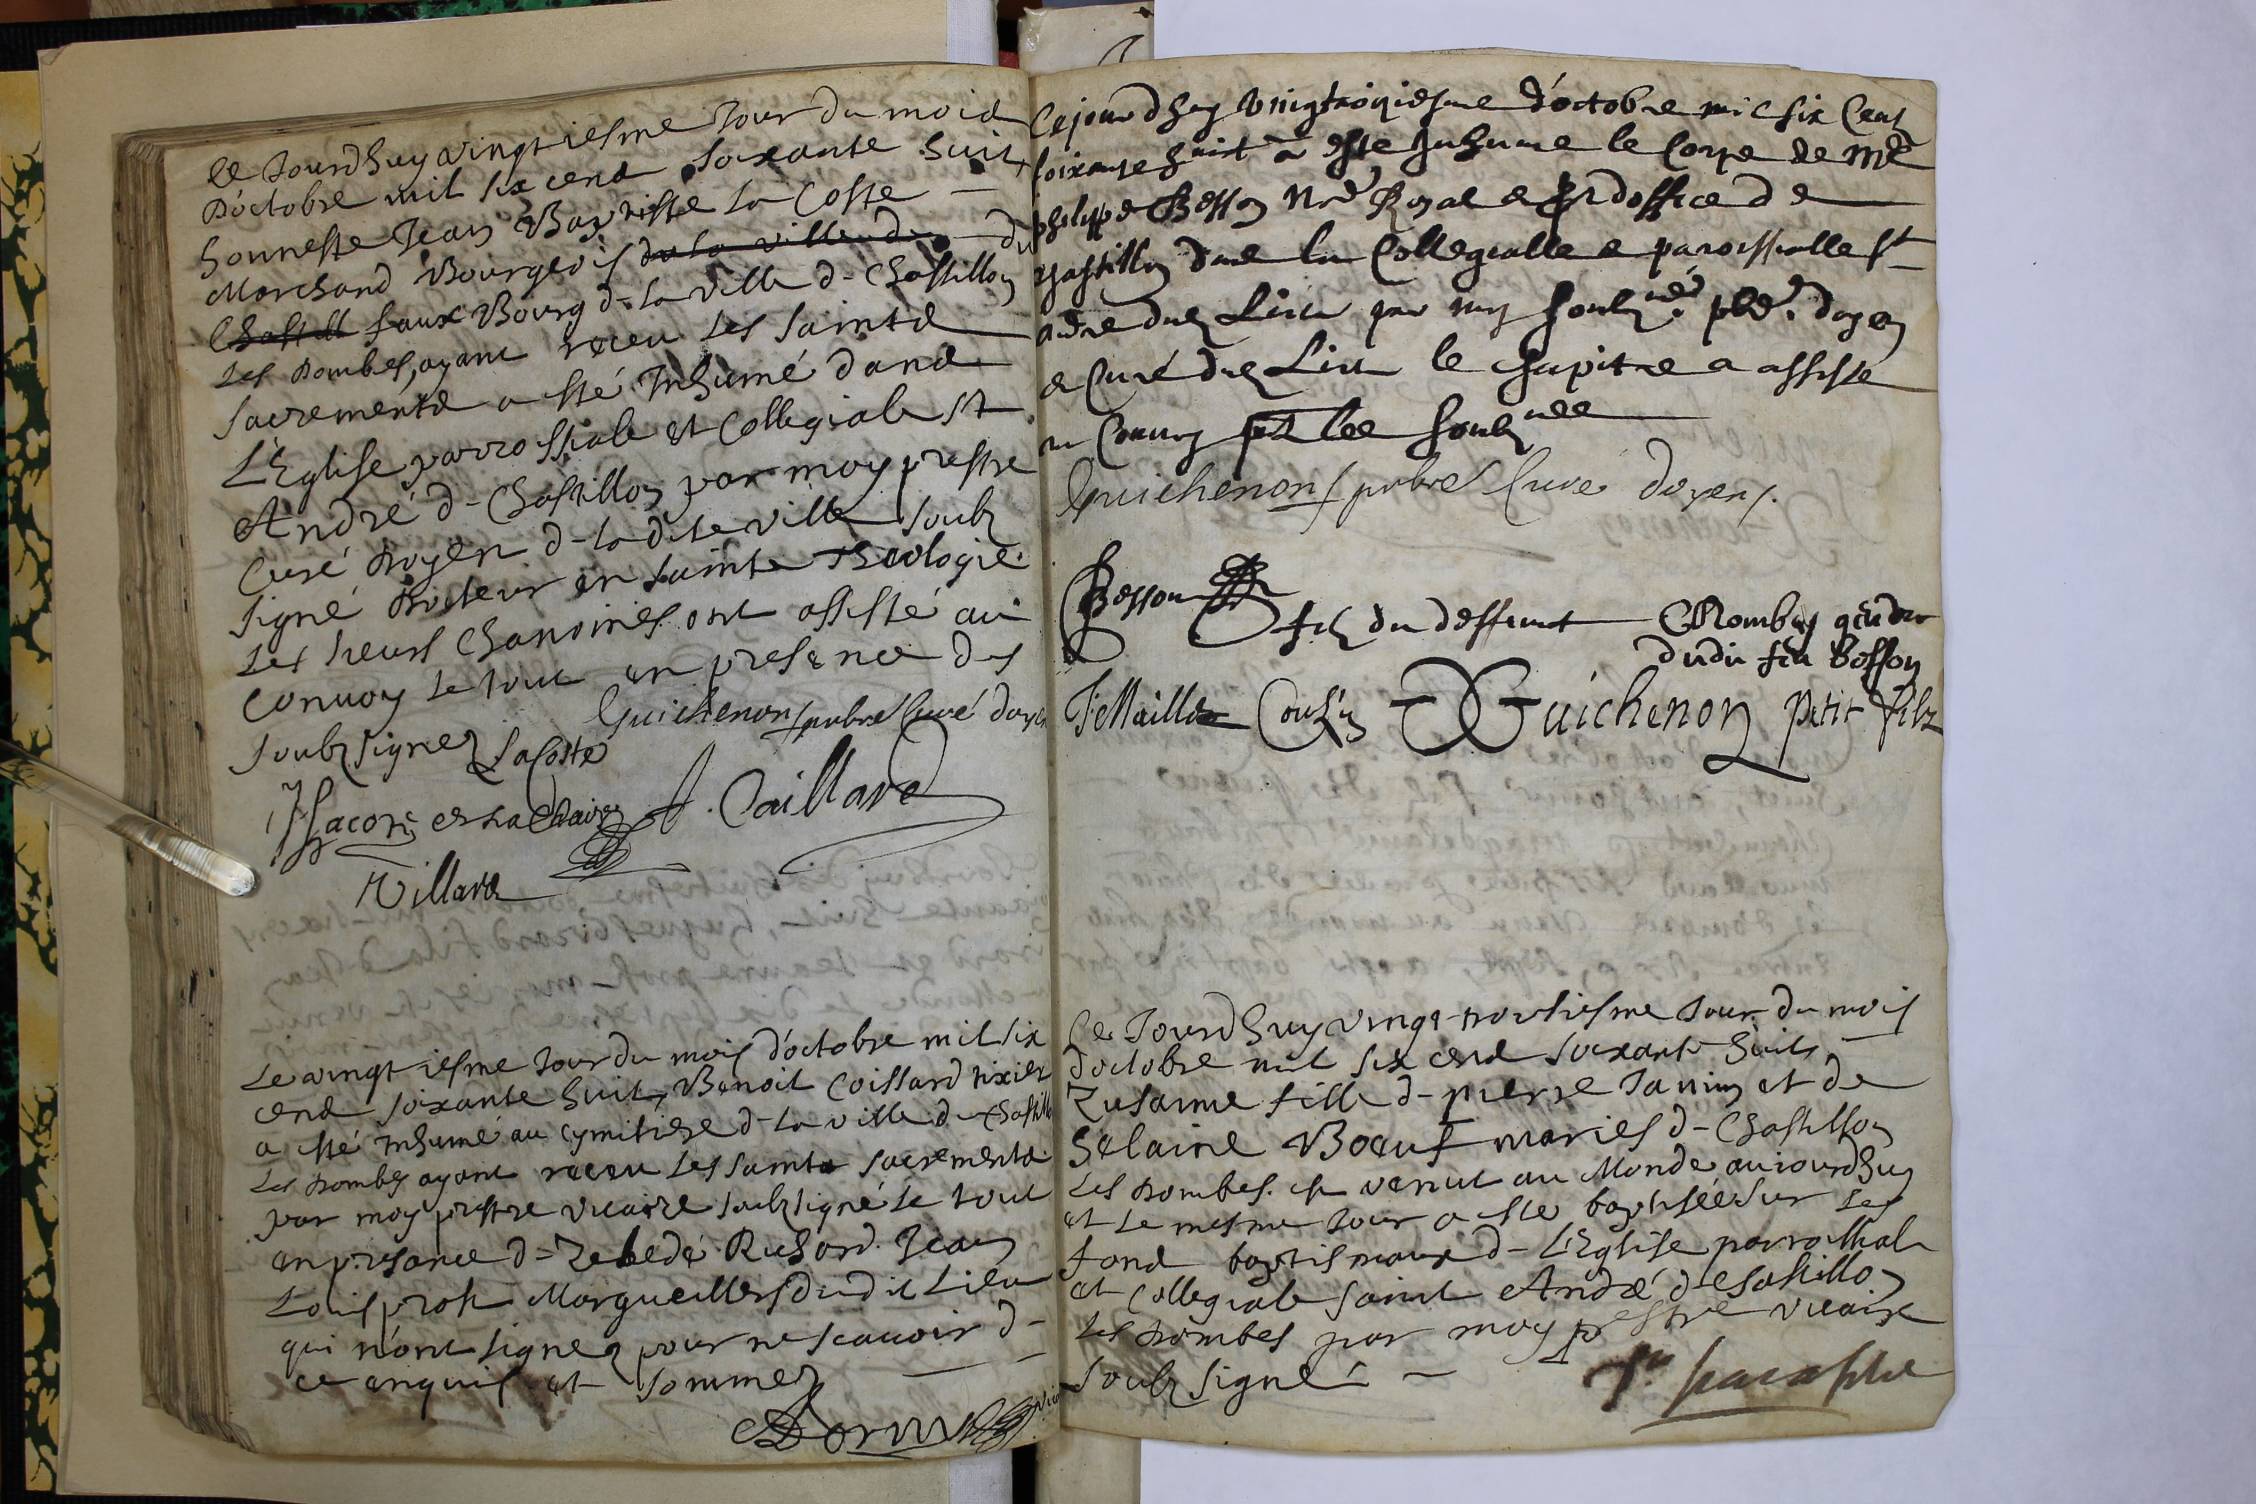 Ce Jourd'huy vingtiesme Jour du mois
D'octobre mil six cend soixante huit
honneste Jean Baptiste La Coste —
Marchand Bourgeois de la ville de du
Chastill faux Bourg d- la ville d- Chastillon
Les Dombes, ayant receu Les Saintd
Sacrementd a esté Inhumé dand
L'Eglise parrossiale et Collegiale St
André d- Chastillon par moy prestre
Curé Doyen d- ladite ville soub
signé Docteur en sainte Theologie
Les sieurs Chanoines ont assisté au
Convoy Le tout en presence des
soubsignez LaCoste
Guichenon prebre Curé doyen
Caillard
Villard
Le vingtiesme Jour du mois d'octobre mil six
cend soixante huit, Benoit Coissard tixier
a esté Inhumé au cymitiere d- la ville d- Chastillo
Les Dombes ayant receu Les saintd sacrementd
par moy prestre vicaire soubsigné Le tout
en presance d= Zebedé Richard Jean
Louis prost Margueilliers dudit Lieu
qui n'ont signez pour ne scavoir d-
ce enquis et sommez
Cejourdhuy vingtroisiesme d'octobre mil six Cent
soixante huit a este Inhume le Corps de Me
philippe Besson Nre Royal et d'office de
Chastillon dans la Collegialle et paroissialle St
Andre dud Lieu par moy soubz.né pbre. doyen
et Curé dud Lieu le chapitre a assisté
au Convoy les soubznés
Guichenon prebre Curé doyen.
Besson filz du deffunct
gendre
dudit feu Besson
Cousin Guichenon petit filz
Ce Jourd'huy vingt-troisiesme Jour du mois
d'octobre mil six cend soixante huit, —
Zusanne fille d- pierre Janin et de
Helaine Boeuf mariés d- Chastillon
Les Dombes. est venue au Monde aujourdhuy
et Le mesme Jour a esté baptisée sur Les
fond baptismaux d- L'Eglise parrossiale
et Collegiale saint André d- Chastillon
Les Dombes par moy prestre vicaire
soubsigné —